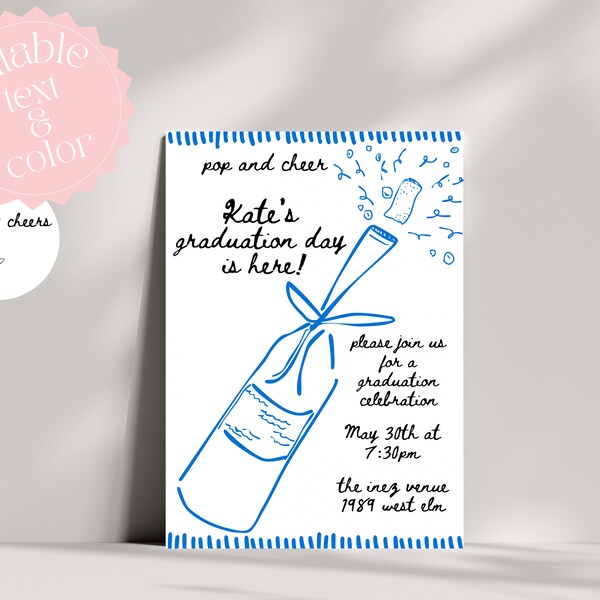 text
&
color
cheers
pop and cheer
Kate's
graduation day
is here!
please join us
for a
graduation
celebration
May 30th at
7:30pm
the inez venue
1989 west elm